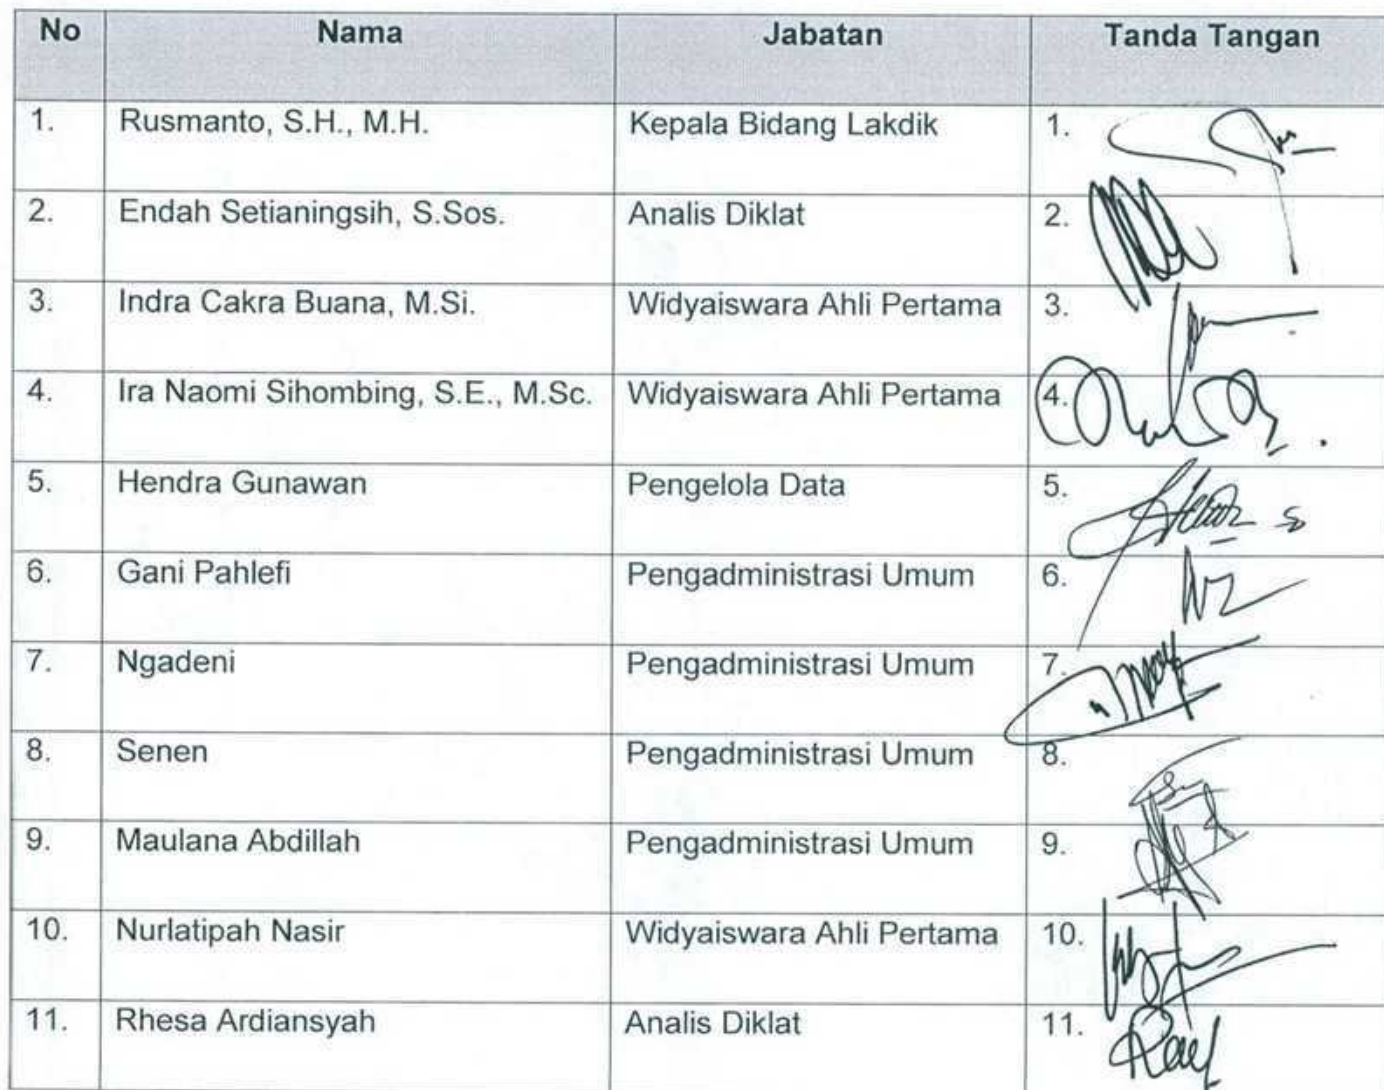 No Nama Jabatan Tanda Tangan
1. Rusmanto, S.H., M.H. Kepala Bidang Lakdik 1.
2. Endah Setianingsih, S.Sos. Analis Diklat 2.
3. Indra Cakra Buana, M.Si. Widyaiswara Ahli Pertama 3.
4. Ira Naomi Sihombing, S.E., M.Sc. Widyaiswara Ahli Pertama 4.
5. Hendra Gunawan Pengelola Data 5.
6. Gani Pahlefi Pengadministrasi Umum 6.
7. Ngadeni Pengadministrasi Umum 7.
8. Senen Pengadministrasi Umum 8.
9. Maulana Abdillah Pengadministrasi Umum 9.
10. Nurlatipah Nasir Widyaiswara Ahli Pertama 10.
11. Rhesa Ardiansyah Analis Diklat 11.